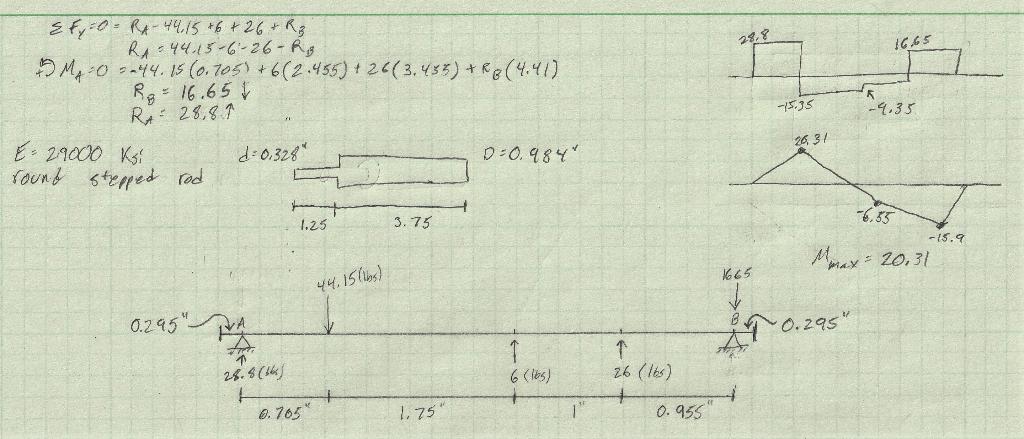 ΣFy=0 = RA-44.15+6+26+RB
RA=44.15-6-26-RB
+↺MA=0 =-44.15(0.705)+6(2.455)+26(3.455)+RB(4.41)
RB = 16.65 ↓
RA= 28.8↑
28.8
16.65
-15.35
-9.35
E=29000 Ksi
round stepped rod
d=0.328"
D=0.984"
1.25
3.75
20.31
-6.55
-15.9
Mmax = 20.31
44.15(lbs)
1665
0.295"
A
B
0.295"
28.8(lbs)
6(lbs)
26 (lbs)
0.705"
1.75"
1"
0.955"